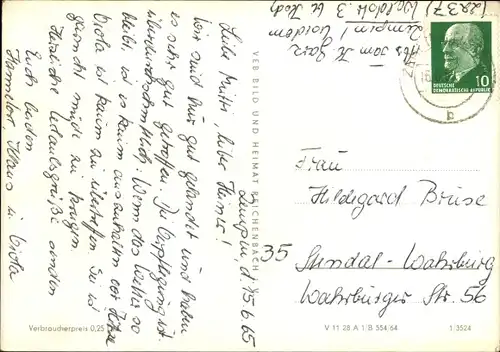 (2237)
Zempin,
Zempin, d. 15.6.65
Liebe Mutti, lieber Heiner!
Wir sind hier gut gelandet und haben
es sehr gut getroffen. Die Verpflegung ist
überdurchschnittlich. Wenn das Wetter so
bleibt, ist es kaum auszuhalten vor Hitze
Viola ist kaum zu übertreffen. Sie ist
garnicht müde zu kriegen.
Herzliche Urlaubsgrüße senden
Euch beiden
Hannelore, Klaus u. Viola
VEB BILD UND HEIMAT REICHENBACH
10
DEUTSCHE
DEMOKRATISCHE REPUBLIK
b
Frau
Hildegard Bruse
35
Stendal-Wahrburg
Wahrburger Str. 56
Verbraucherpreis 0,25
V 11 28 A 1/B 554/64
1/3524